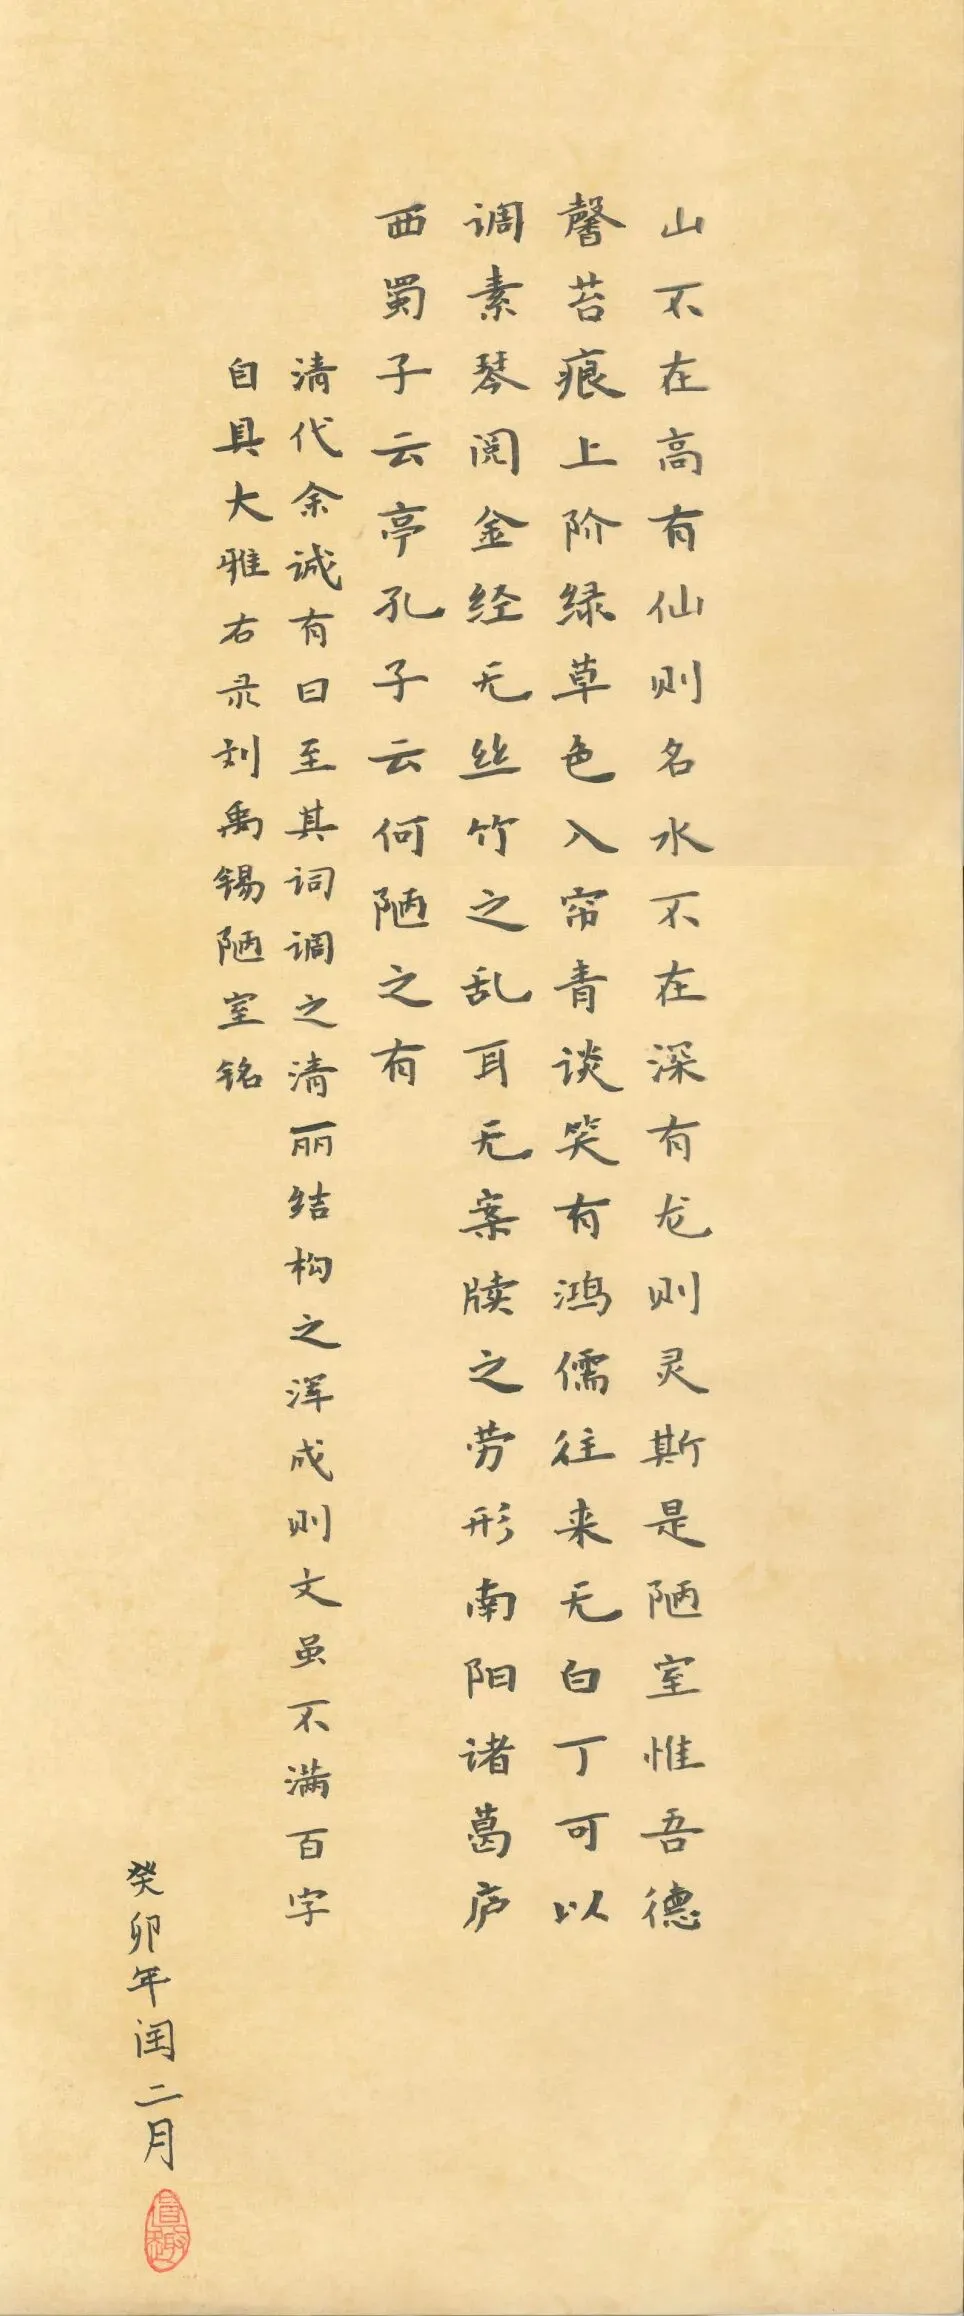 山不在高有仙则名水不在深有龙则灵斯是陋室惟吾德
馨苔痕上阶绿草色入帘青谈笑有鸿儒往来无白丁可以
调素琴阅金经无丝竹之乱耳无案牍之劳形南阳诸葛庐
西蜀子云亭孔子云何陋之有
清代余诚有曰至其词调之清丽结构之浑成则文虽不满百字
自具大雅右录刘禹锡陋室铭
癸卯年闰二月